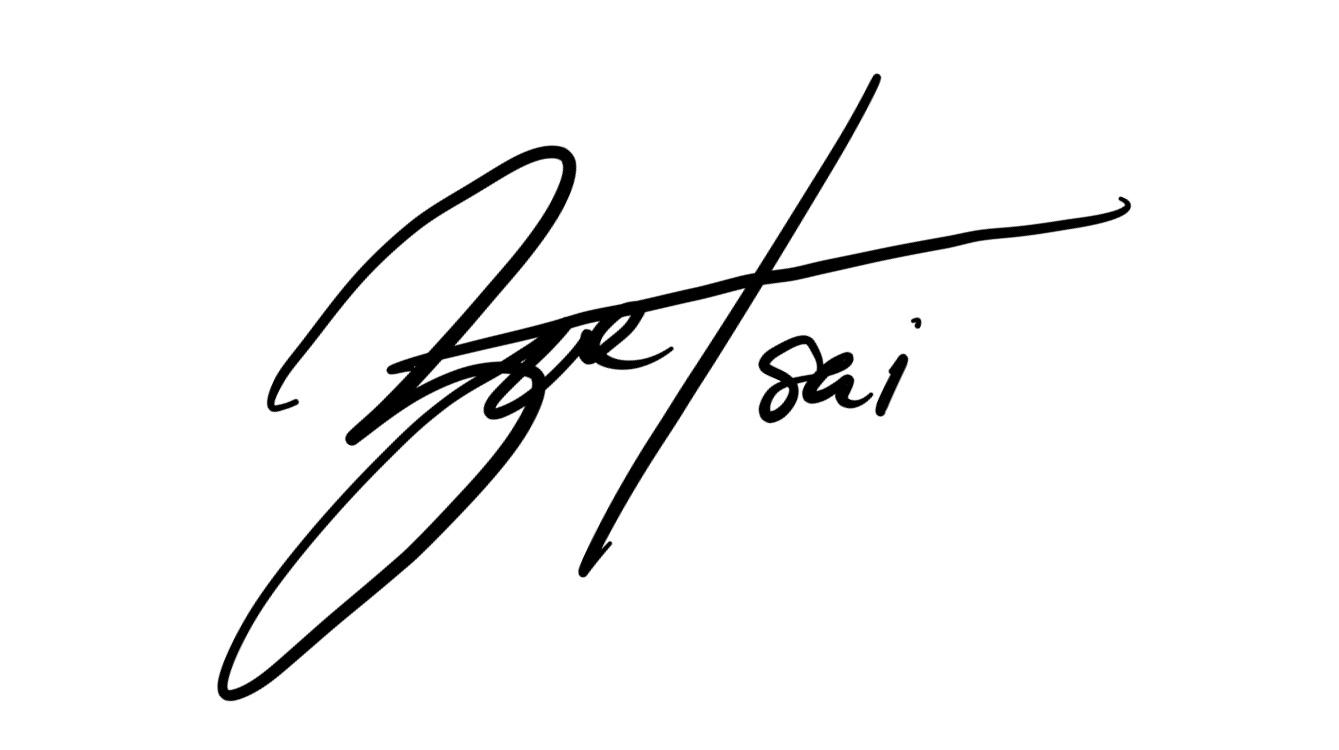 Zoe Tsai